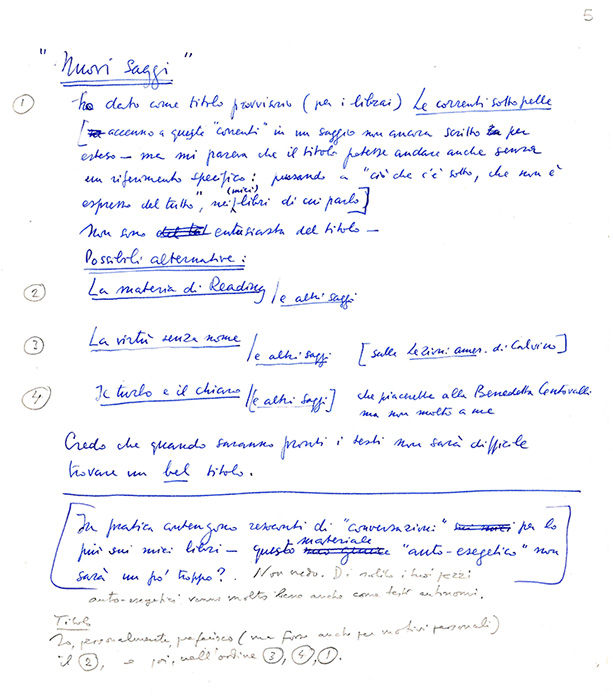 5
"Nuovi saggi"
1 ho dato come titolo provvisorio (per i librai) Le correnti sottopelle
[accenno a queste "correnti" in un saggio non ancora scritto per
esteso – ma mi pareva che il titolo potesse andare anche senza
un riferimento specifico: pensando a "ciò che c'è sotto, che non è
espresso del tutto", nei (miei) libri di cui parlo]
Non sono entusiasta del titolo –
Possibili alternative:
2 La materia di Reading / e altri saggi
3 La virtù senza nome / e altri saggi [sulle Lezioni amer. di Calvino]
4 Il turbo e il chiaro / [e altri saggi] che piacerebbe alla Benedetta Centovalli
ma non molto a me
Credo che quando saranno pronti i testi non sarà difficile
trovare un bel titolo.
[In pratica contengono resoconti di "conversazioni" per lo
più sui miei libri – questo materiale "auto-esegetico" non
sarà un po' troppo? Non vedo. Di solito i tuoi pezzi
auto-esegetici vanno molto bene anche come testi autonomi.
Titolo
Io, personalmente, preferisco (ma forse anche per motivi personali)
il 2, e poi, nell'ordine 3, 4, 1.